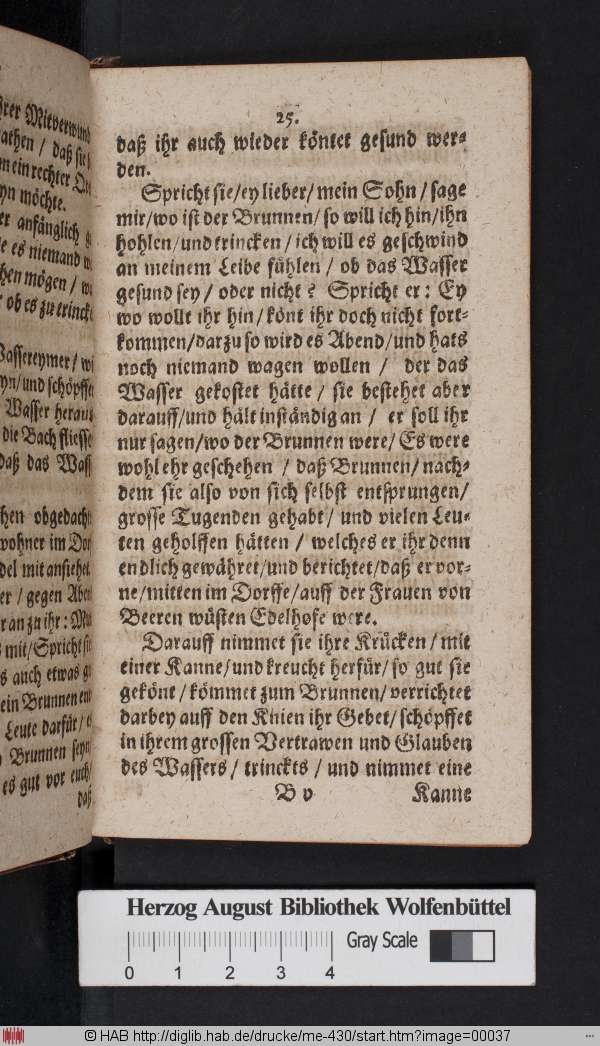 25.
daß ihr auch wieder köntet gesund wer-
den.
Spricht sie/ey lieber/mein Sohn/sage
mir/wo ist der Brunnen/so will ich hin/ihn
hohlen/und trincken/ich will es geschwind
an meinem Leibe fühlen/ob das Wasser
gesund sey/oder nicht? Spricht er: Ey
wo wollt ihr hin/könt ihr doch nicht fort-
kommen/darzu so wird es Abend/und hats
noch niemand wagen wollen/der das
Wasser gekostet hätte/sie bestehet aber
darauff/und hält inständig an/er soll ihr
nur sagen/wo der Brunnen were/Es were
wohl ehr geschehen/daß Brunnen/nach-
dem sie also von sich selbst entsprungen/
grosse Tugenden gehabt/und vielen Leu-
ten geholffen hätten/welches er ihr denn
endlich gewähret/und berichtet/daß er vor-
ne/mitten im Dorffe/auff der Frauen von
Beeren wüsten Edelhofe were.
Darauff nimmet sie ihre Krücken/mit
einer Kanne/und kreucht herfür/so gut sie
gekönt/kömmet zum Brunnen/verrichtet
darbey auff den Knien ihr Gebet/schöpffet
in ihrem grossen Vertrawen und Glauben
des Wassers/trinckts/und nimmet eine
B v Kanne
Mitverwund
athen/daß sie
m ein rechter
yn möchte.
anfänglich
es niemand
hen mögen/
ob es zu trinck
Wassereymer/
yn/und schöpffe
Wasser heraus
die Bach fliesse
daß das Wass
hen obgedach
wohner im Dor
del mit anstehet
er/gegen Aben
ran zu ihr:
mit/Spricht
auch etwas
ein Brunnen
Leute darfür/
Brunnen seyn
es gut vor euch
daß
Herzog August Bibliothek Wolfenbüttel
Gray Scale
0 1 2 3 4
© HAB http://diglib.hab.de/drucke/me-430/start.htm?image=00037